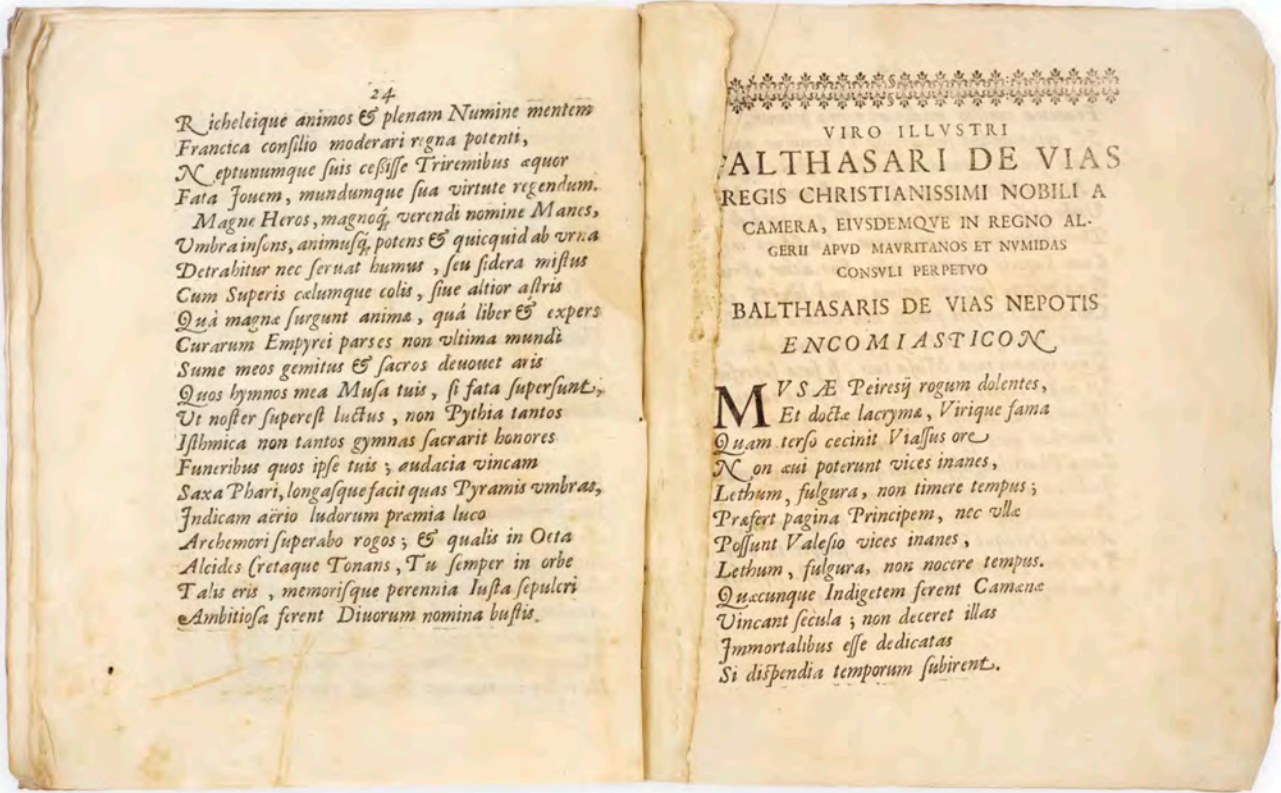 24
Richeleique animos & plenam Numine mentem
Francica consilio moderari regna potenti,
Neptunumque suis ceſſiſſe Triremibus æquor
Fata Jouem, mundumque ſua virtute regendum.
Magne Heros, magnoq́; verendi nomine Manes,
Vmbra inſons, animuſq́; potens & quicquid ab vrna
Detrahitur nec ſeruat humus, ſeu ſidera miſtus
Cum Superis cælumque colis, ſiue altior aſtris
Quà magnæ ſurgunt animæ, quá liber & expers
Curarum Empyrei pars es non vltima mundi
Sume meos gemitus & ſacros deuouet aris
Quos hymnos mea Muſa tuis, ſi fata ſuperſunt,
Ut noſter ſupereſt luctus, non Pythia tantos
Iſthmica non tantos gymnas ſacrarit honores
Funeribus quos ipſe tuis; audacia vincam
Saxa Phari, longaſque facit quas Pyramis vmbras,
Indicam aërio ludorum præmia luco
Archemori ſuperabo rogos; & qualis in Oeta
Alcides Cretaque Tonans, Tu ſemper in orbe
Talis eris, memoriſque perennia Iuſta ſepulcri
Ambitioſa ferent Diuorum nomina buſtis.
VIRO ILLVSTRI
BALTHASARI DE VIAS
REGIS CHRISTIANISSIMI NOBILI A
CAMERA, EIVSDEMQVE IN REGNO AL-
GERII APVD MAVRITANOS ET NVMIDAS
CONSVLI PERPETVO
BALTHASARIS DE VIAS NEPOTIS
ENCOMIASTICON
MVSÆ Peireſij rogum dolentes,
Et doctæ lacrymæ, Virique fama
Quam terſo cecinit Viaſſus ore
Non æui poterunt vices inanes,
Lethum, fulgura, non timere tempus;
Præfert pagina Principem, nec vllæ
Poſſunt Valeſio vices inanes,
Lethum, fulgura, non nocere tempus.
Quæcunque Indigetem ferent Camænæ
Vincant ſecula; non deceret illas
Immortalibus eſſe dedicatas
Si diſpendia temporum ſubirent.